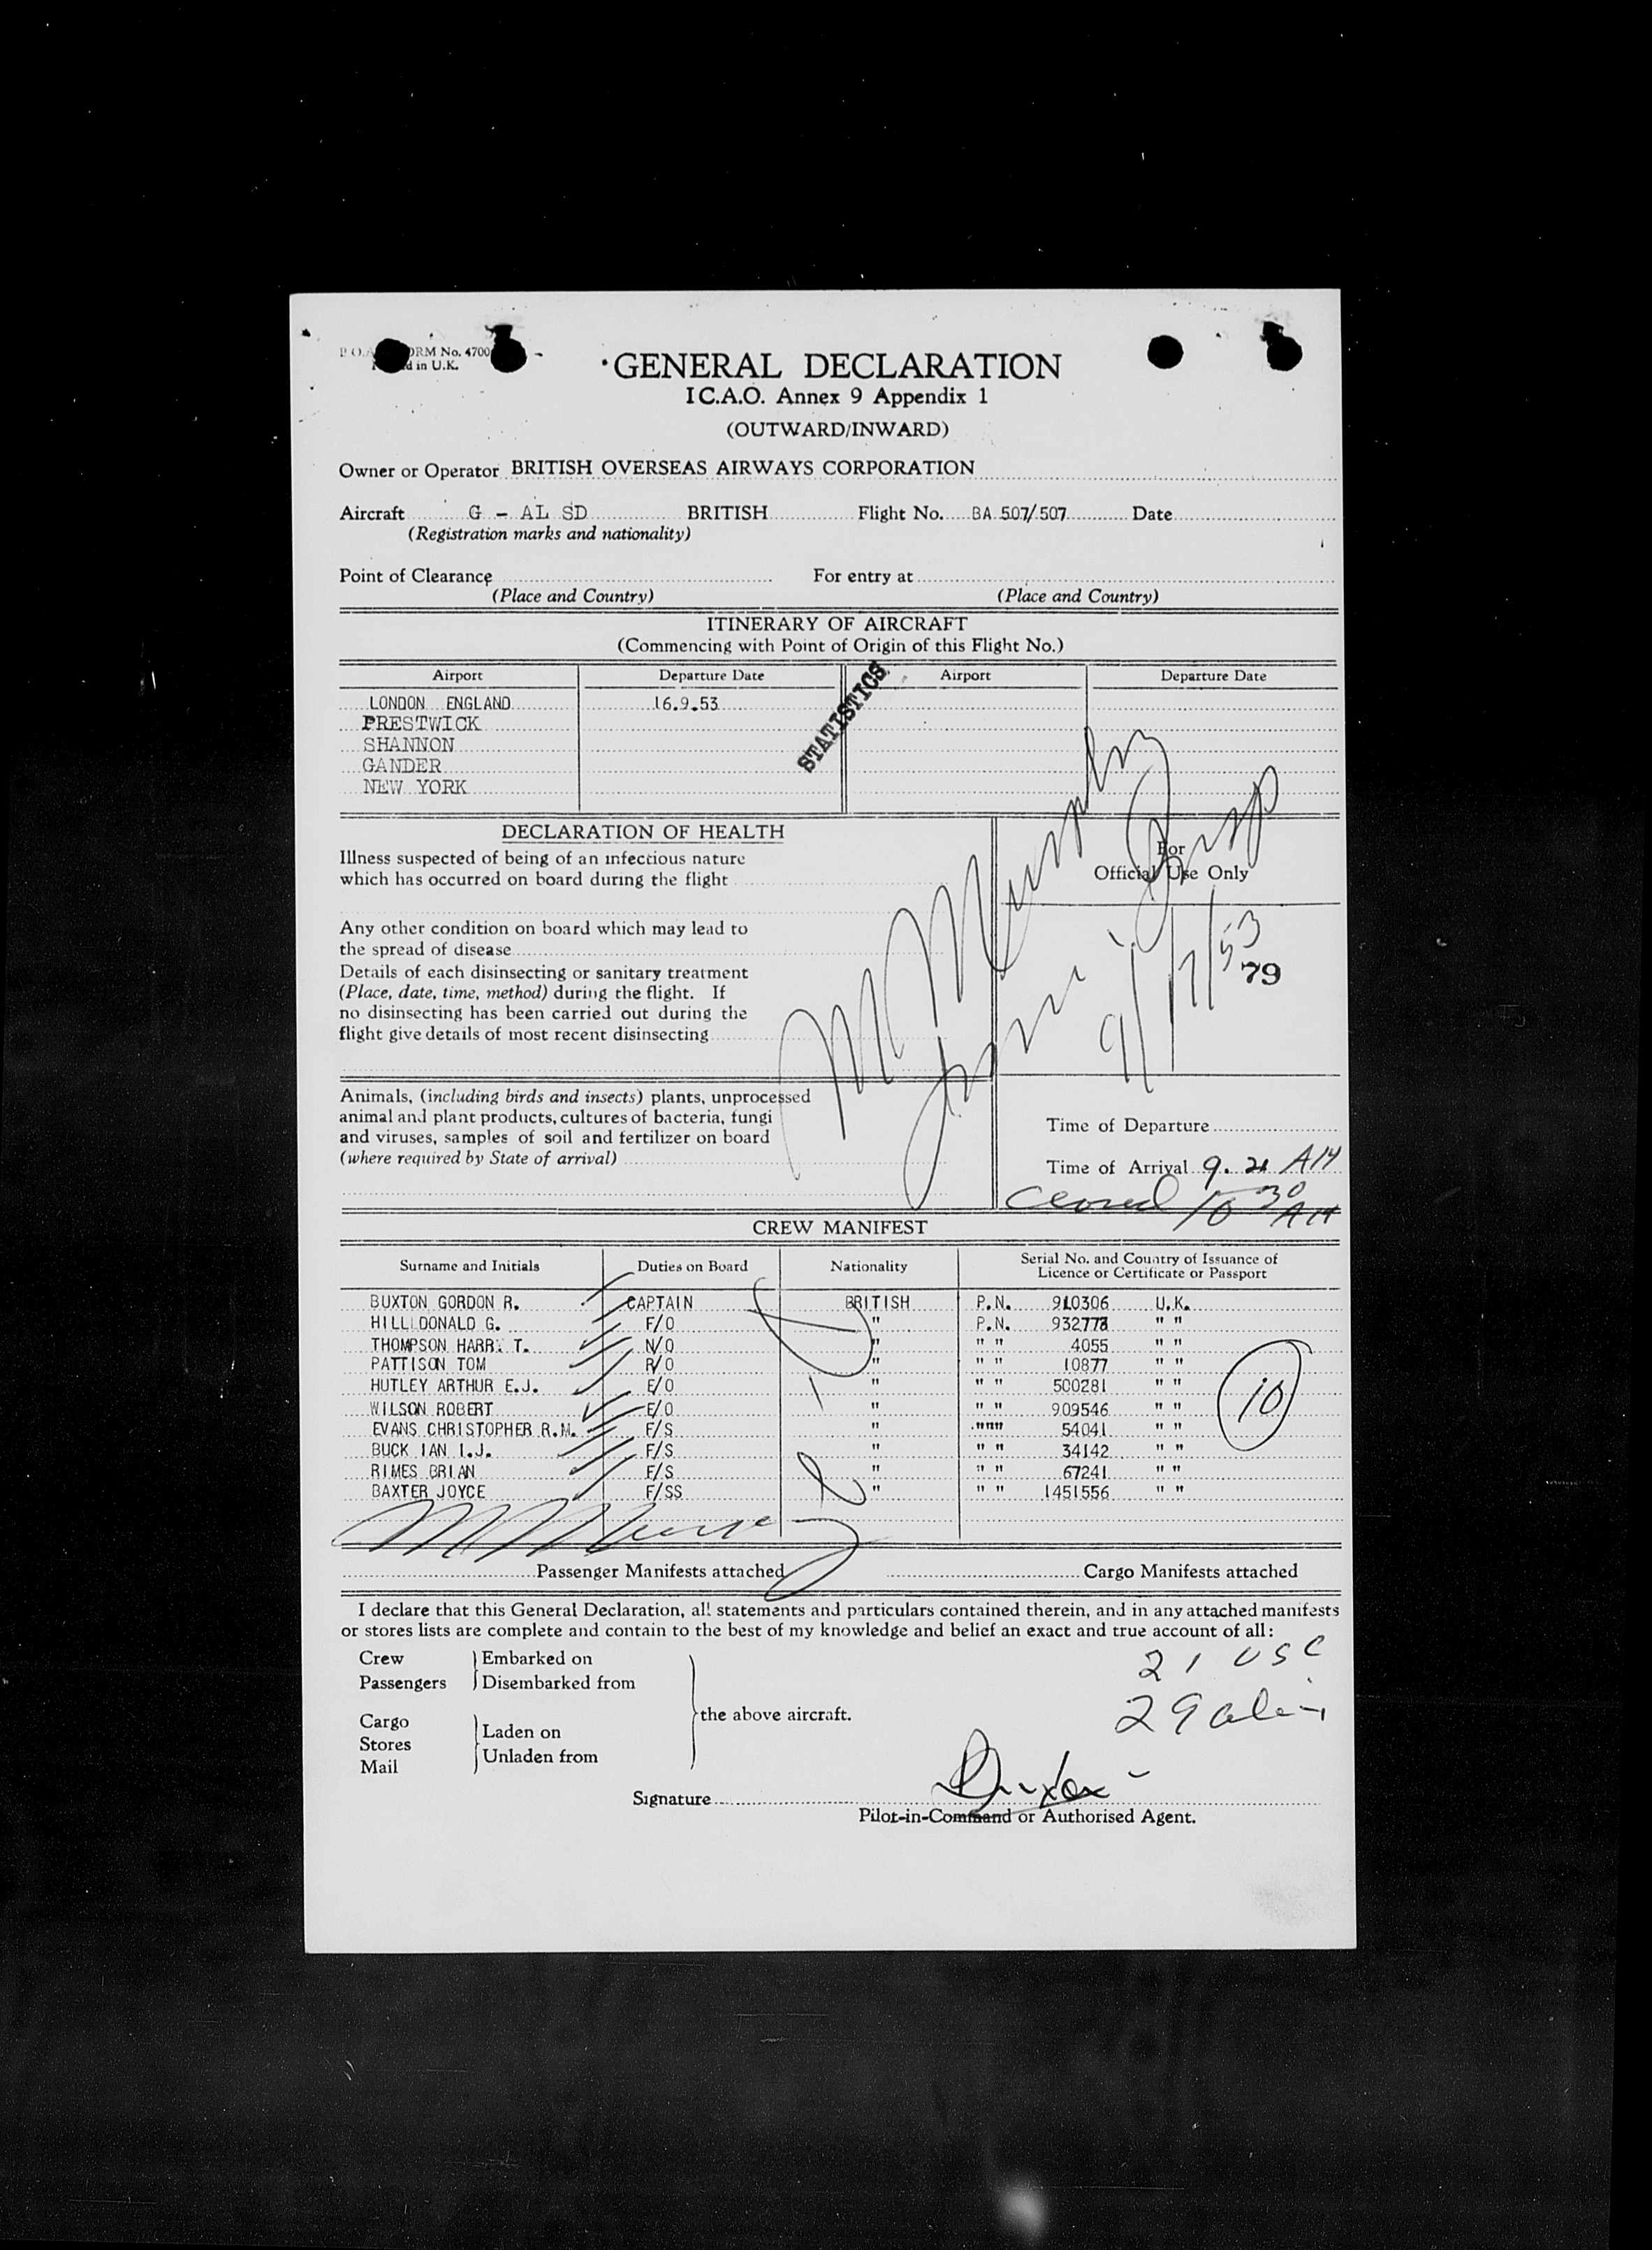 FORM No. 4700
in U.K.
GENERAL DECLARATION
I C.A.O. Annex 9 Appendix 1
(OUTWARD/INWARD)
Owner or Operator BRITISH OVERSEAS AIRWAYS CORPORATION
Aircraft G - AL SD BRITISH Flight No. BA 507/507 Date
(Registration marks and nationality)
Point of Clearance For entry at
(Place and Country) (Place and Country)
ITINERARY OF AIRCRAFT
(Commencing with Point of Origin of this Flight No.)
Airport Departure Date Airport Departure Date
LONDON ENGLAND 16.9.53
PRESTWICK
SHANNON
GANDER
NEW YORK
STATISTICS
DECLARATION OF HEALTH
Illness suspected of being of an infectious nature
which has occurred on board during the flight
For
Official Use Only
Any other condition on board which may lead to
the spread of disease
Details of each disinsecting or sanitary treatment
(Place, date, time, method) during the flight. If
no disinsecting has been carried out during the
flight give details of most recent disinsecting
M Murphy
9/17/53
79
Animals, (including birds and insects) plants, unprocessed
animal and plant products, cultures of bacteria, fungi
and viruses, samples of soil and fertilizer on board
(where required by State of arrival)
Time of Departure
Time of Arrival 9. 21 AM
10 30 AM
CREW MANIFEST
Surname and Initials Duties on Board Nationality Serial No. and Country of Issuance of
Licence or Certificate or Passport
BUXTON GORDON R. CAPTAIN BRITISH P.N. 910306 U.K.
HILL DONALD G. F/O " P.N. 932773 " "
THOMPSON HARR. T. N/O " " " 4055 " "
PATTISON TOM R/O " " " 10877 " "
HUTLEY ARTHUR E.J. E/O " " " 500281 " "
WILSON ROBERT E/O " " " 909546 " "
EVANS CHRISTOPHER R.M. F/S " """" 54041 " "
BUCK IAN I.J. F/S " " " 34142 " "
RIMES BRIAN F/S " " " 67241 " "
BAXTER JOYCE F/SS " " " 1451556 " "
10
Passenger Manifests attached Cargo Manifests attached
I declare that this General Declaration, all statements and particulars contained therein, and in any attached manifests
or stores lists are complete and contain to the best of my knowledge and belief an exact and true account of all:
Crew Embarked on
Passengers Disembarked from
Cargo Laden on
Stores
Mail Unladen from
the above aircraft.
21 USC
29 alien
Signature Buxton
Pilot-in-Command or Authorised Agent.